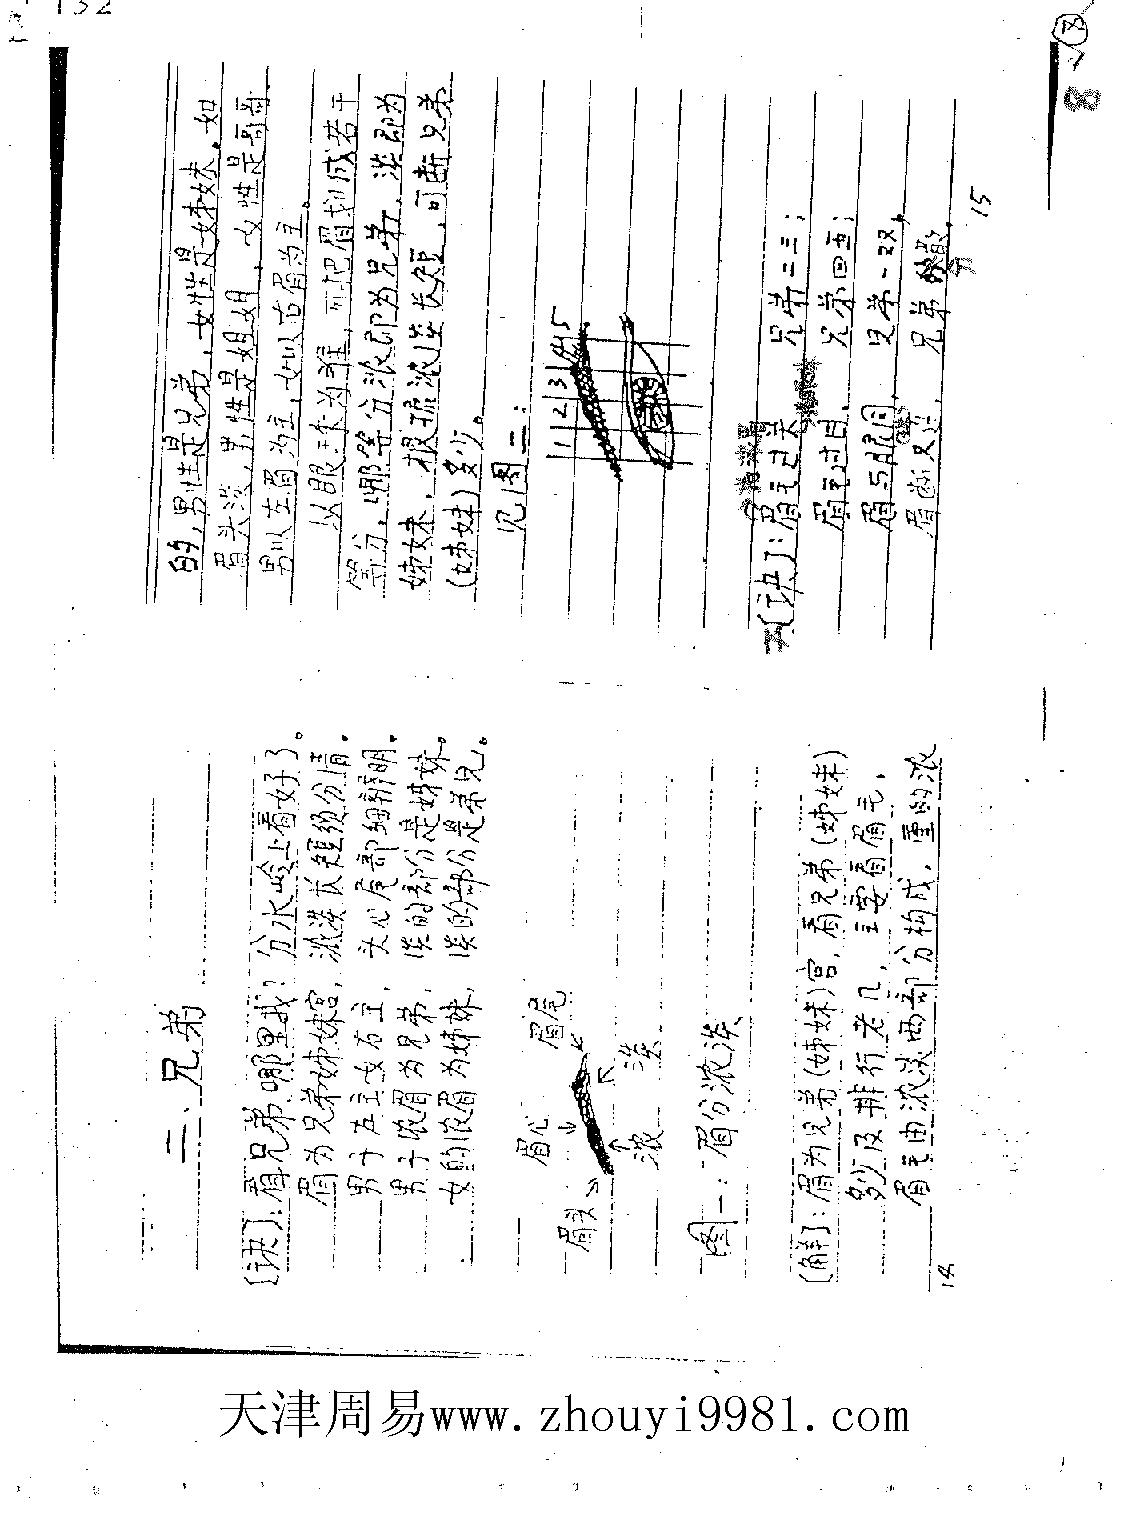 132
二、兄弟
〔诀〕：看兄弟哪里找？分水岭上看好了。
眉为兄弟姊妹宫，浓淡长短须分清。
男子左主女右主，头心尾部细辨明。
男子浓眉为兄弟，淡的部分是姊妹。
女的浓眉为姊妹，淡的部分是弟兄。
眉头
眉心
眉尾
浓
淡
图一：眉分浓淡
〔解〕：眉为兄弟（姊妹）宫，看兄弟（姊妹）
多少及排行老几，主要看眉毛，
眉毛由浓淡两部分构成，重的浓
14
的，男性是兄弟，女性是姊妹，如
眉头淡，男性是姐姐，女性是哥哥，
男以左眉为主，女以右眉为主。
以眼球为准，可把眉划成若干
等分，哪等分浓即为兄弟，淡即为
姊妹，根据浓淡长短，可断兄弟
（姊妹）多少。
见图二：
1 2 3 4 5
〔诀〕：眉毛过关 兄弟二三；
眉毛过目， 兄弟四画；
眉与眼同 兄弟一双，
眉断又连， 兄弟 散，
15
8
天津周易www.zhouyi9981.com